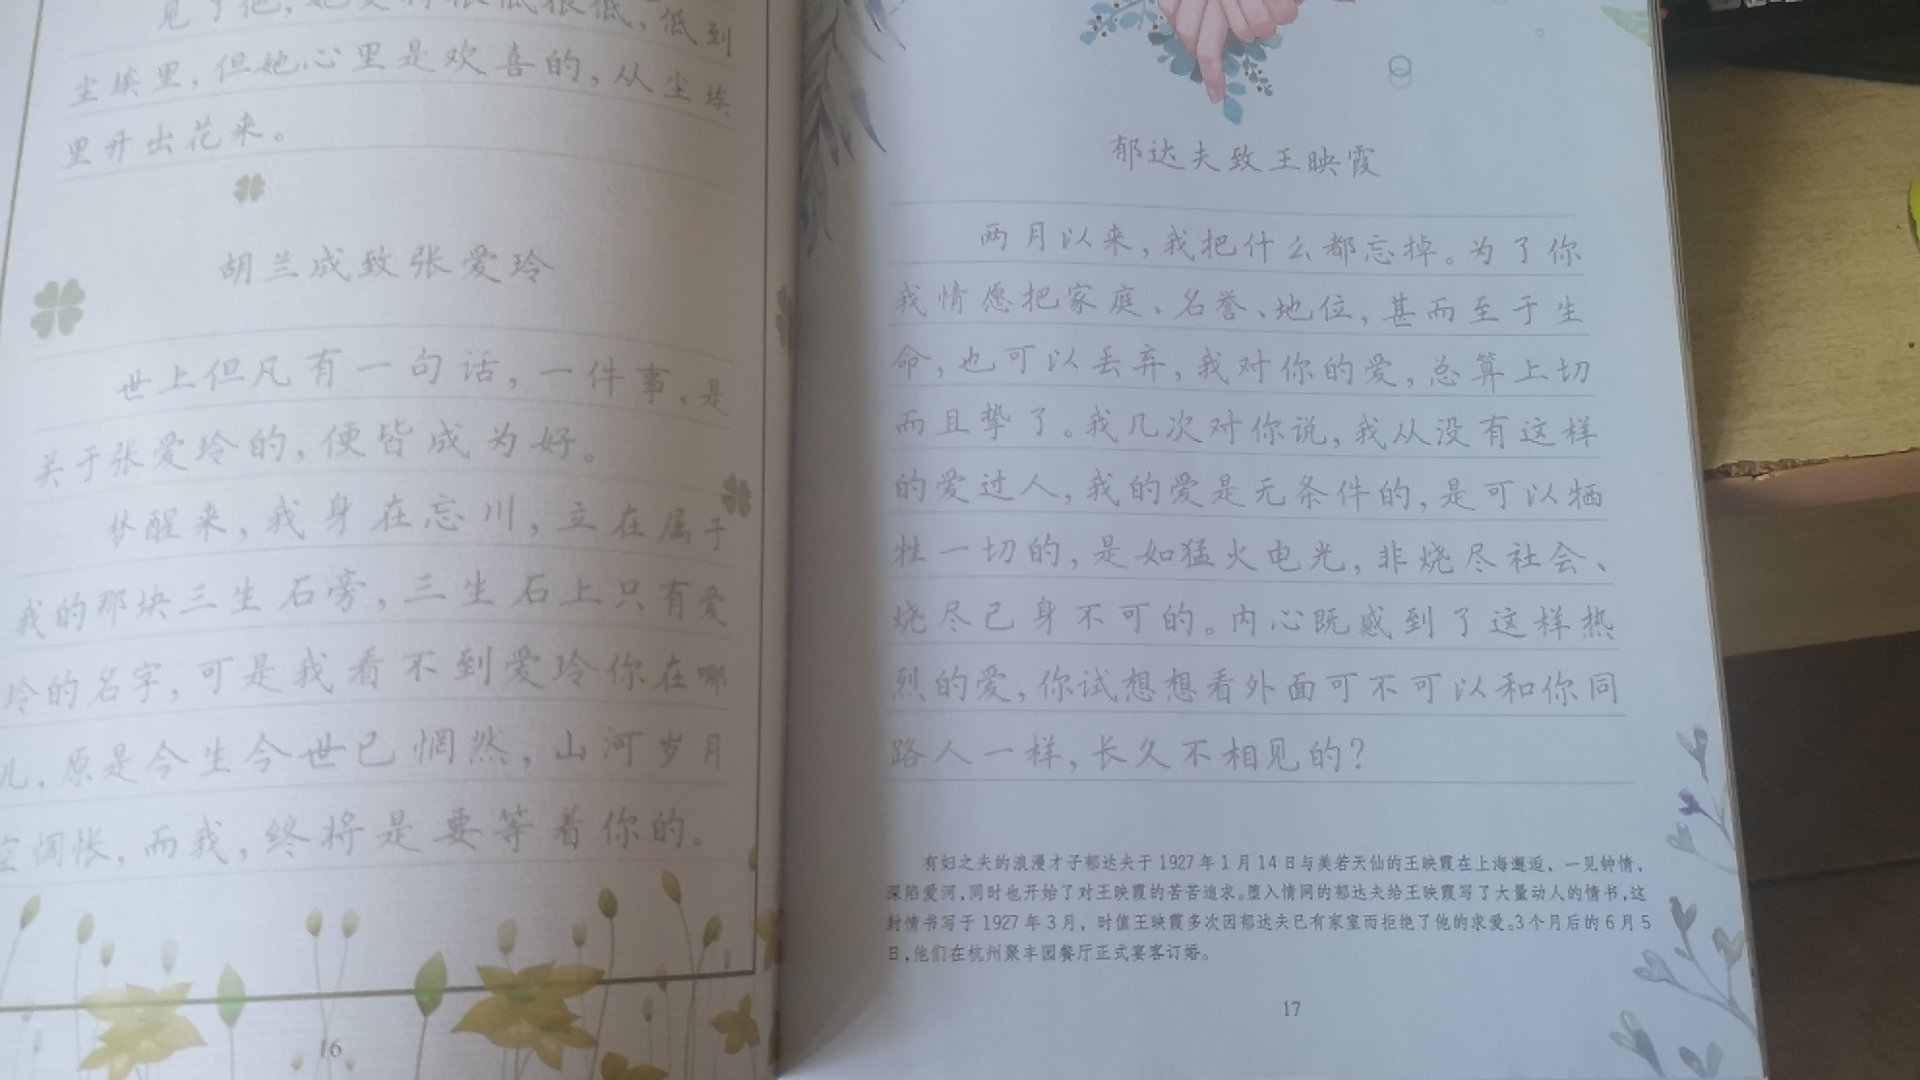 见了他，她变得很低很低，低到
尘埃里，但她心里是欢喜的，从尘埃
里开出花来。
胡兰成致张爱玲
世上但凡有一句话，一件事，是
关于张爱玲的，便皆成为好。
梦醒来，我身在忘川，立在属于
我的那块三生石旁，三生石上只有爱
玲的名字，可是我看不到爱玲你在哪
儿，原是今生今世已惘然，山河岁月
空惆怅，而我，终将是要等着你的。
16
郁达夫致王映霞
两月以来，我把什么都忘掉。为了你
我情愿把家庭、名誉、地位，甚而至于生
命，也可以丢弃，我对你的爱，总算上切
而且挚了。我几次对你说，我从没有这样
的爱过人，我的爱是无条件的，是可以牺
牲一切的，是如猛火电光，非烧尽社会、
烧尽己身不可的。内心既感到了这样热
烈的爱，你试想想看外面可不可以和你同
路人一样，长久不相见的？
有妇之夫的浪漫才子郁达夫于1927年1月14日与美若天仙的王映霞在上海邂逅，一见钟情，
深陷爱河，同时也开始了对王映霞的苦苦追求。堕入情网的郁达夫给王映霞写了大量动人的情书，这
封情书写于1927年3月，时值王映霞多次因郁达夫已有家室而拒绝了他的求爱。3个月后的6月5
日，他们在杭州聚丰园餐厅正式宴客订婚。
17